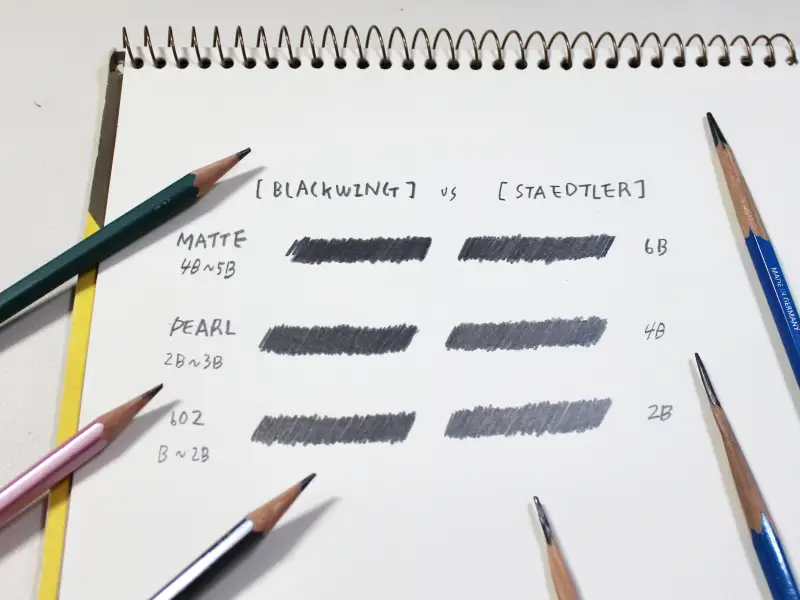 [BLACKWING] vs [STAEDTLER]
MATTE 6B
4B~5B
PEARL 4B
2B~3B
602 2B
B~2B
MADE IN GERMANY